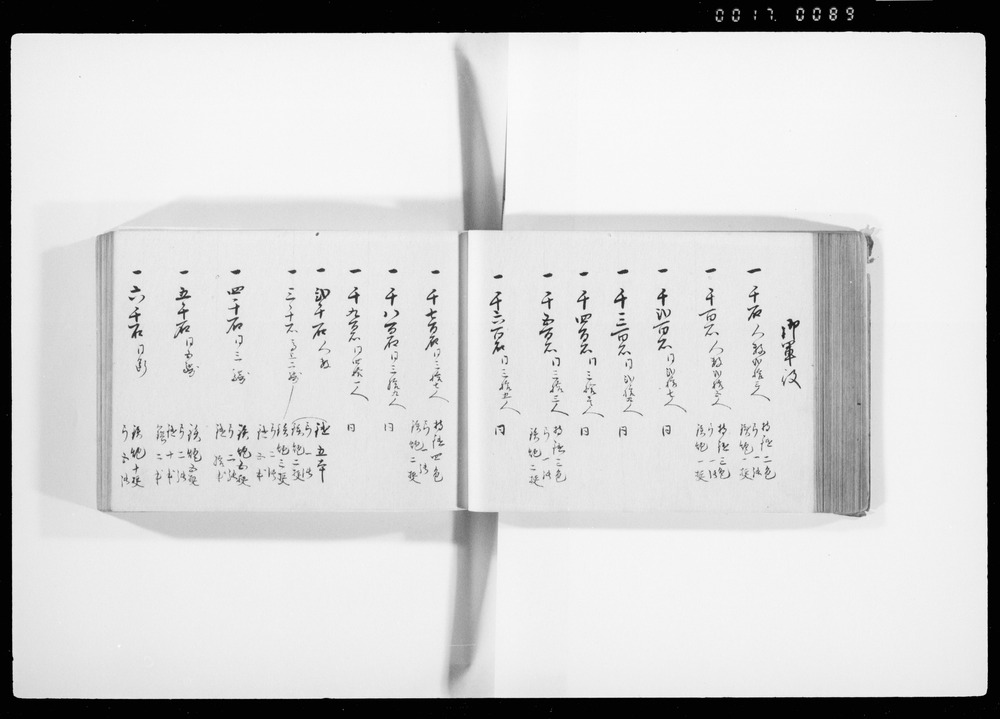 0017 0089
御軍役
一千石人数弐拾壱人
持鑓二色
弓一張
鉄炮一挺
一千百石人数弐拾三人
持鑓三色
弓一張
鉄炮一挺
一千弐百石同弐拾七人
一千三百石同弐拾九人 同
一千四百石同三拾壱人 同
一千五百石同三拾三人
持鑓三色
弓一張
鉄炮二挺
一千六百石同三拾五人 同
一千七百石同三拾七人
持鑓四色
弓一張
鉄炮二挺
一千八百石同三拾九人 同
一千九百石同四拾一人 同
一弐千石人数
鑓五本
弓一張
鉄炮二挺
一三千石
鉄炮三挺
弓二張
鑓五本
一四千石同三
鉄炮五挺
弓二張
鑓拾本
一五千石同
鉄炮五挺
弓二張
鑓十本
一六千石同断
鉄炮十挺
弓五張